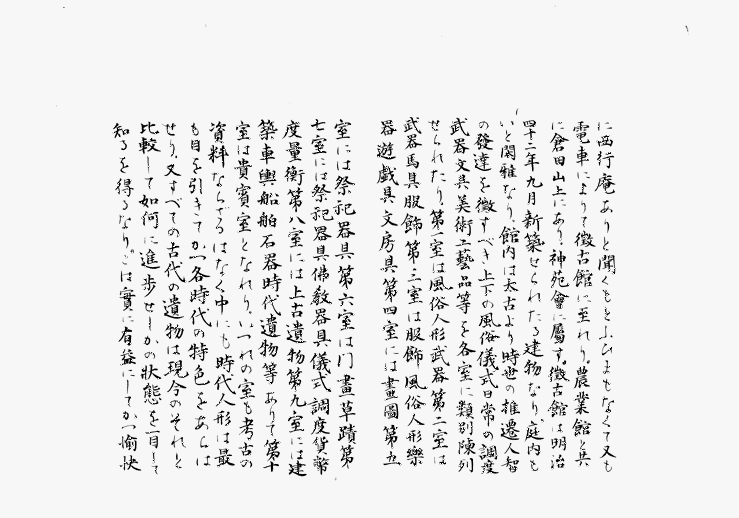 に西行庵ありと聞くもとふひまもなくて又も
電車によりて徴古館に至れり。農業館と共
に倉田山上にあり。神苑會に屬す。徴古館は明治
四十二年九月新築せられたる建物なり。庭内も
いと閑雅なり。館内は太古より時世の推遷人智
の發達を徴すべき上下の風俗儀式日常の調度
武器文具美術工藝品等を各室に類別陳列
せられたり。第一室は風俗人形武器第二室は
武器馬具服飾第三室は服飾風俗人形樂
器遊戲具文房具第四室には畫圖第五
室には祭祀器具第六室は門畫草蹟第
七室には祭祀器具佛教器具儀式調度貨幣
度量衡第八室には上古遺物第九室には建
築車輿船舶石器時代遺物等ありて第十
室は貴賓室となれり。いづれの室も考古の
資料ならざるはなく中にも時代人形は最
も目を引きてかつ各時代の特色をあらは
せり。又すべての古代の遺物は現今のそれと
比較して如何に進歩せしかの状態を一目して
知るを得るなり。こは實に有益にしてかつ愉快